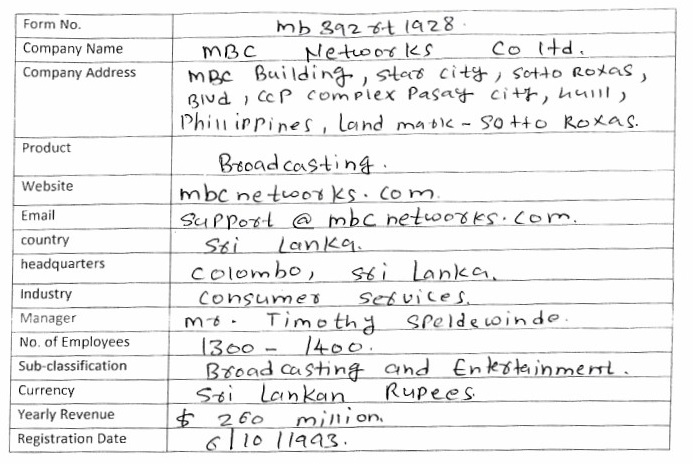 Form No. mb 392 rt 1928.
Company Name MBC Networks Co ltd.
Company Address MBC Building, star city, sotto Roxas,
Blvd, CCP complex Pasay city,
Phillippines, Land mark - sotto Roxas.
Product Broadcasting.
Website mbcnetworks.com.
Email support @ mbcnetworks.com.
country Sri Lanka.
headquarters Colombo, sri Lanka.
Industry Consumer Services.
Manager mr. Timothy Speldewinde.
No. of Employees 1300 - 1400.
Sub-classification Broadcasting and Entertainment.
Currency Sri Lankan Rupees.
Yearly Revenue $ 260 million.
Registration Date 6/10/1993.